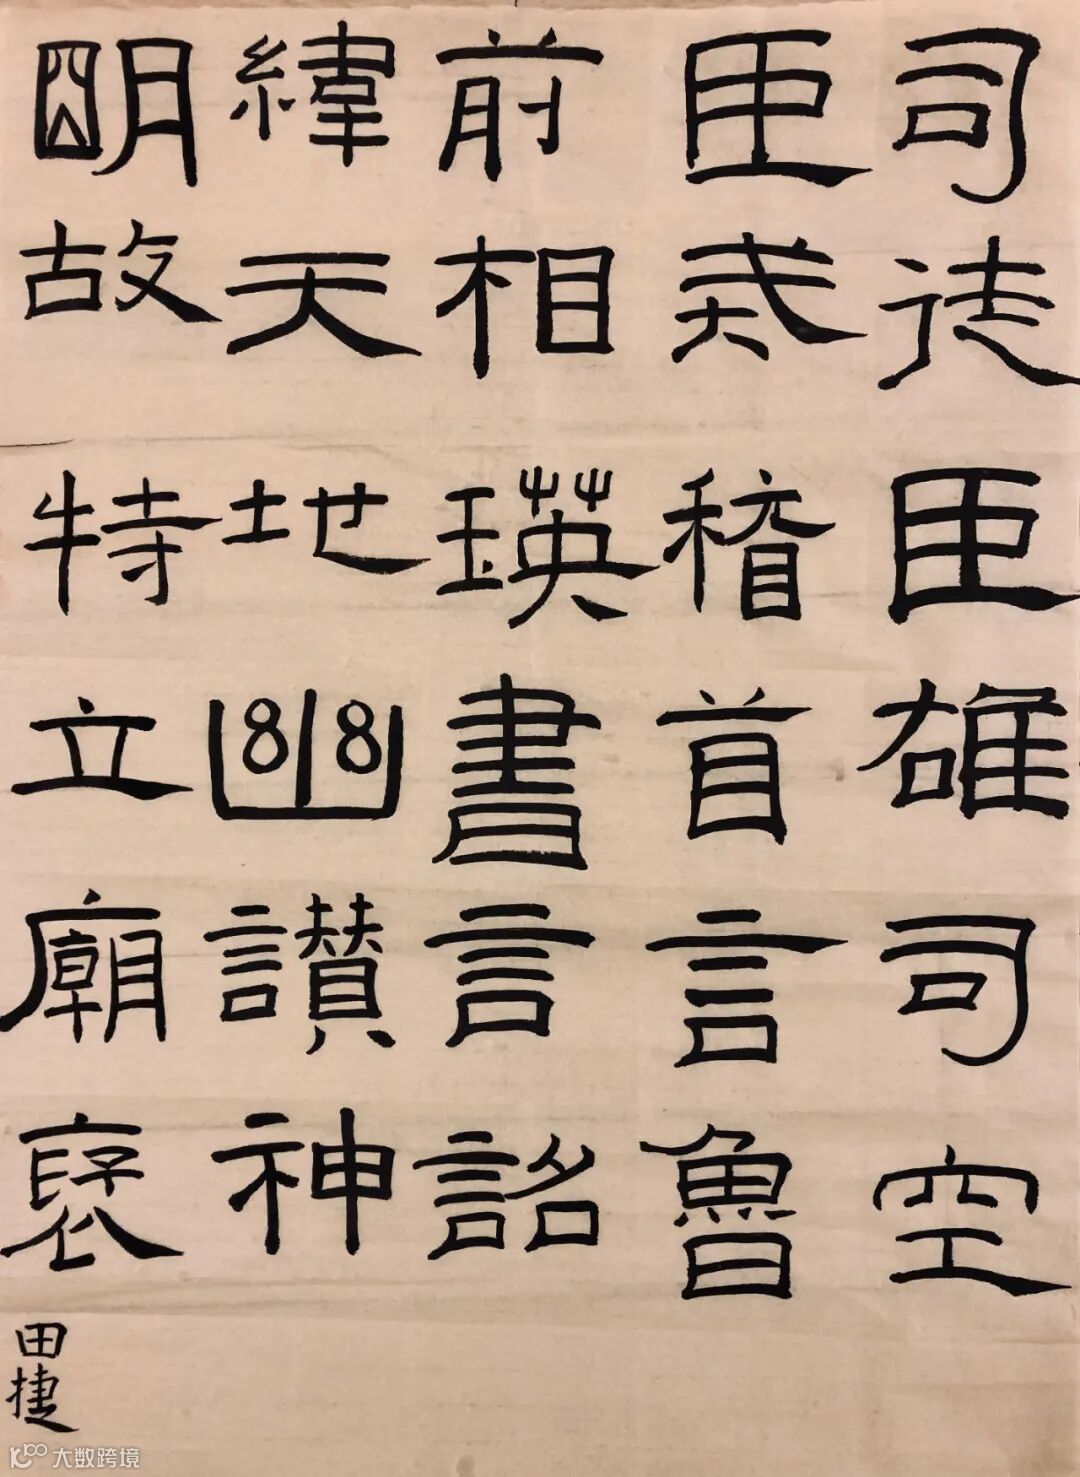 司徒臣雄司空
臣戒稽首言魯
前相瑛書言詔
緯天地幽讃神
明故特立廟褒
田捷
大数跨境